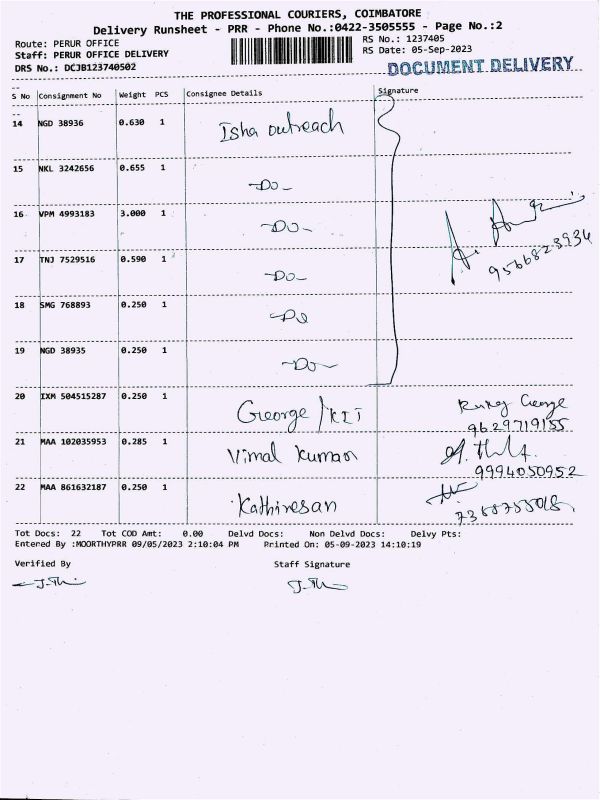 THE PROFESSIONAL COURIERS, COIMBATORE
Delivery Runsheet - PRR - Phone No.:0422-3505555 - Page No.:2
Route: PERUR OFFICE
RS No.: 1237405
Staff: PERUR OFFICE DELIVERY
RS Date: 05-Sep-2023
DRS No.: DCJB123740502
DOCUMENT DELIVERY
S No Consignment No Weight PCS Consignee Details Signature
14 NGD 38936 0.630 1 Isha outreach
15 NKL 3242656 0.655 1 -Do-
16 VPM 4993183 3.000 1 -Do-
9566823934
17 TNJ 7529516 0.590 1 -Do-
18 SMG 768893 0.250 1 -Do
19 NGD 38935 0.250 1 -Do-
20 IXM 504515287 0.250 1 George/KIT George
9629719155
21 MAA 102035953 0.285 1 Vimal kumar
9994050952
22 MAA 861632187 0.250 1 Kathiresan
Tot Docs: 22 Tot COD Amt: 0.00 Delvd Docs: Non Delvd Docs: Delvy Pts:
Entered By :MOORTHYPRR 09/05/2023 2:10:04 PM Printed On: 05-09-2023 14:10:19
Verified By Staff Signature